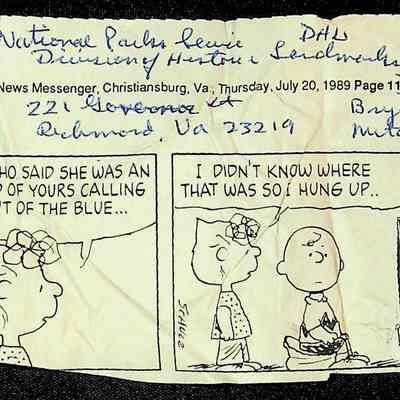 National Parks Service DHL
Division of Historic Landmarks
News Messenger, Christiansburg, Va., Thursday, July 20, 1989 Page 11
221 Governor St
Richmond, Va 23219
HO SAID SHE WAS AN
D OF YOURS CALLING
T OF THE BLUE...
I DIDN'T KNOW WHERE
THAT WAS SO I HUNG UP..
SCHULZ